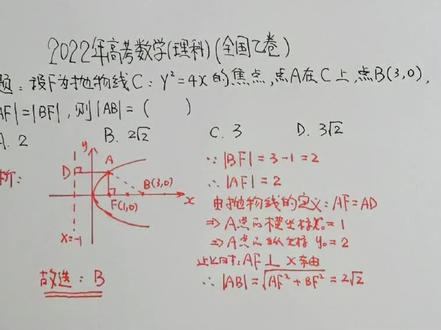 2022年高考数学(理科)(全国乙卷)
题:设F为抛物线C:y²=4x的焦点,点A在C上,点B(3,0),
AF|=|BF|,则|AB|=( )
A. 2 B. 2√2 C. 3 D. 3√2
析:
y
D A
B(3,0)
F(1,0) x
x=-1
∵|BF|=3-1=2
∴|AF|=2
由抛物线的定义:AF=AD
⇒A点的横坐标x₀=1
⇒A点的纵坐标y₀=2
此时:AF⊥x轴
∴|AB|=√AF²+BF²=2√2
故选:B